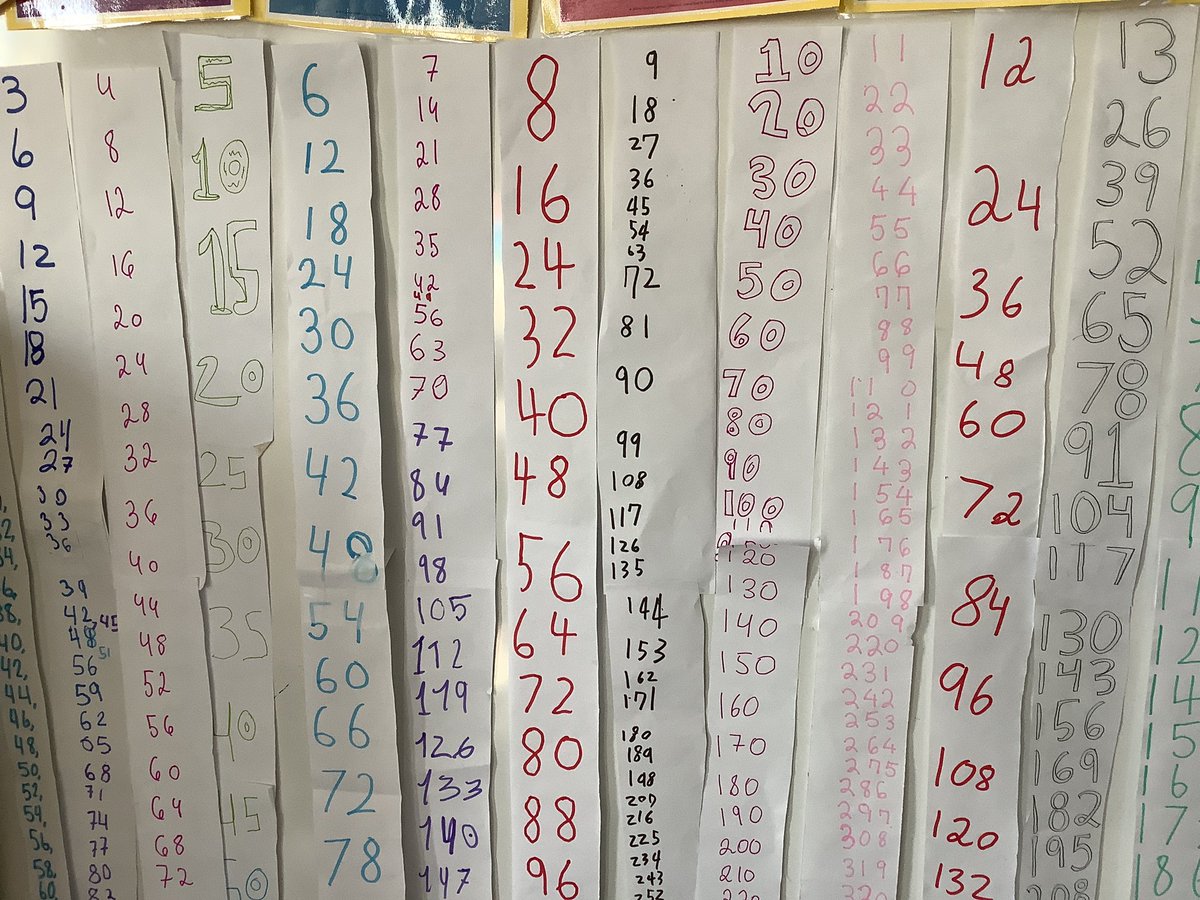 40,
42,
44,
46,
48,
50,
52,
54,
56,
58,
60,
3
6
9
12
15
18
21
24
27
30
33
36
39
42, 45
48 51
56
59
62
65
68
71
74
77
80
4
8
12
16
20
24
28
32
36
40
44
48
52
56
60
64
68
72
5
10
15
20
25
30
35
40
45
50
6
12
18
24
30
36
42
48
54
60
66
72
78
7
14
21
28
35
42
49
56
63
70
77
84
91
98
105
112
119
126
133
140
147
8
16
24
32
40
48
56
64
72
80
88
96
9
18
27
36
45
54
63
72
81
90
99
108
117
126
135
144
153
162
171
180
189
198
207
216
225
234
243
252
10
20
30
40
50
60
70
80
90
100
110
120
130
140
150
160
170
180
190
200
210
11
22
33
44
55
66
77
88
99
110
121
132
143
154
165
176
187
198
209
220
231
242
253
264
275
286
297
308
319
12
24
36
48
60
72
84
96
108
120
132
13
26
39
52
65
78
91
104
117
130
143
156
169
182
195
208